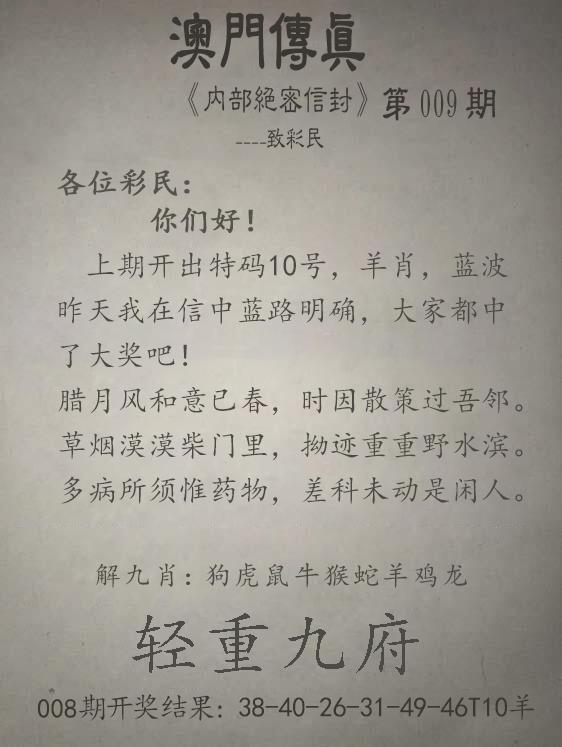 澳門傳真
《内部絕密信封》第009期
----致彩民
各位彩民：
你们好！
上期开出特码10号，羊肖，蓝波
昨天我在信中蓝路明确，大家都中
了大奖吧！
腊月风和意已春，时因散策过吾邻。
草烟漠漠柴门里，拗迹重重野水滨。
多病所须惟药物，差科未动是闲人。
解九肖：狗虎鼠牛猴蛇羊鸡龙
轻重九府
008期开奖结果：38-40-26-31-49-46T10羊